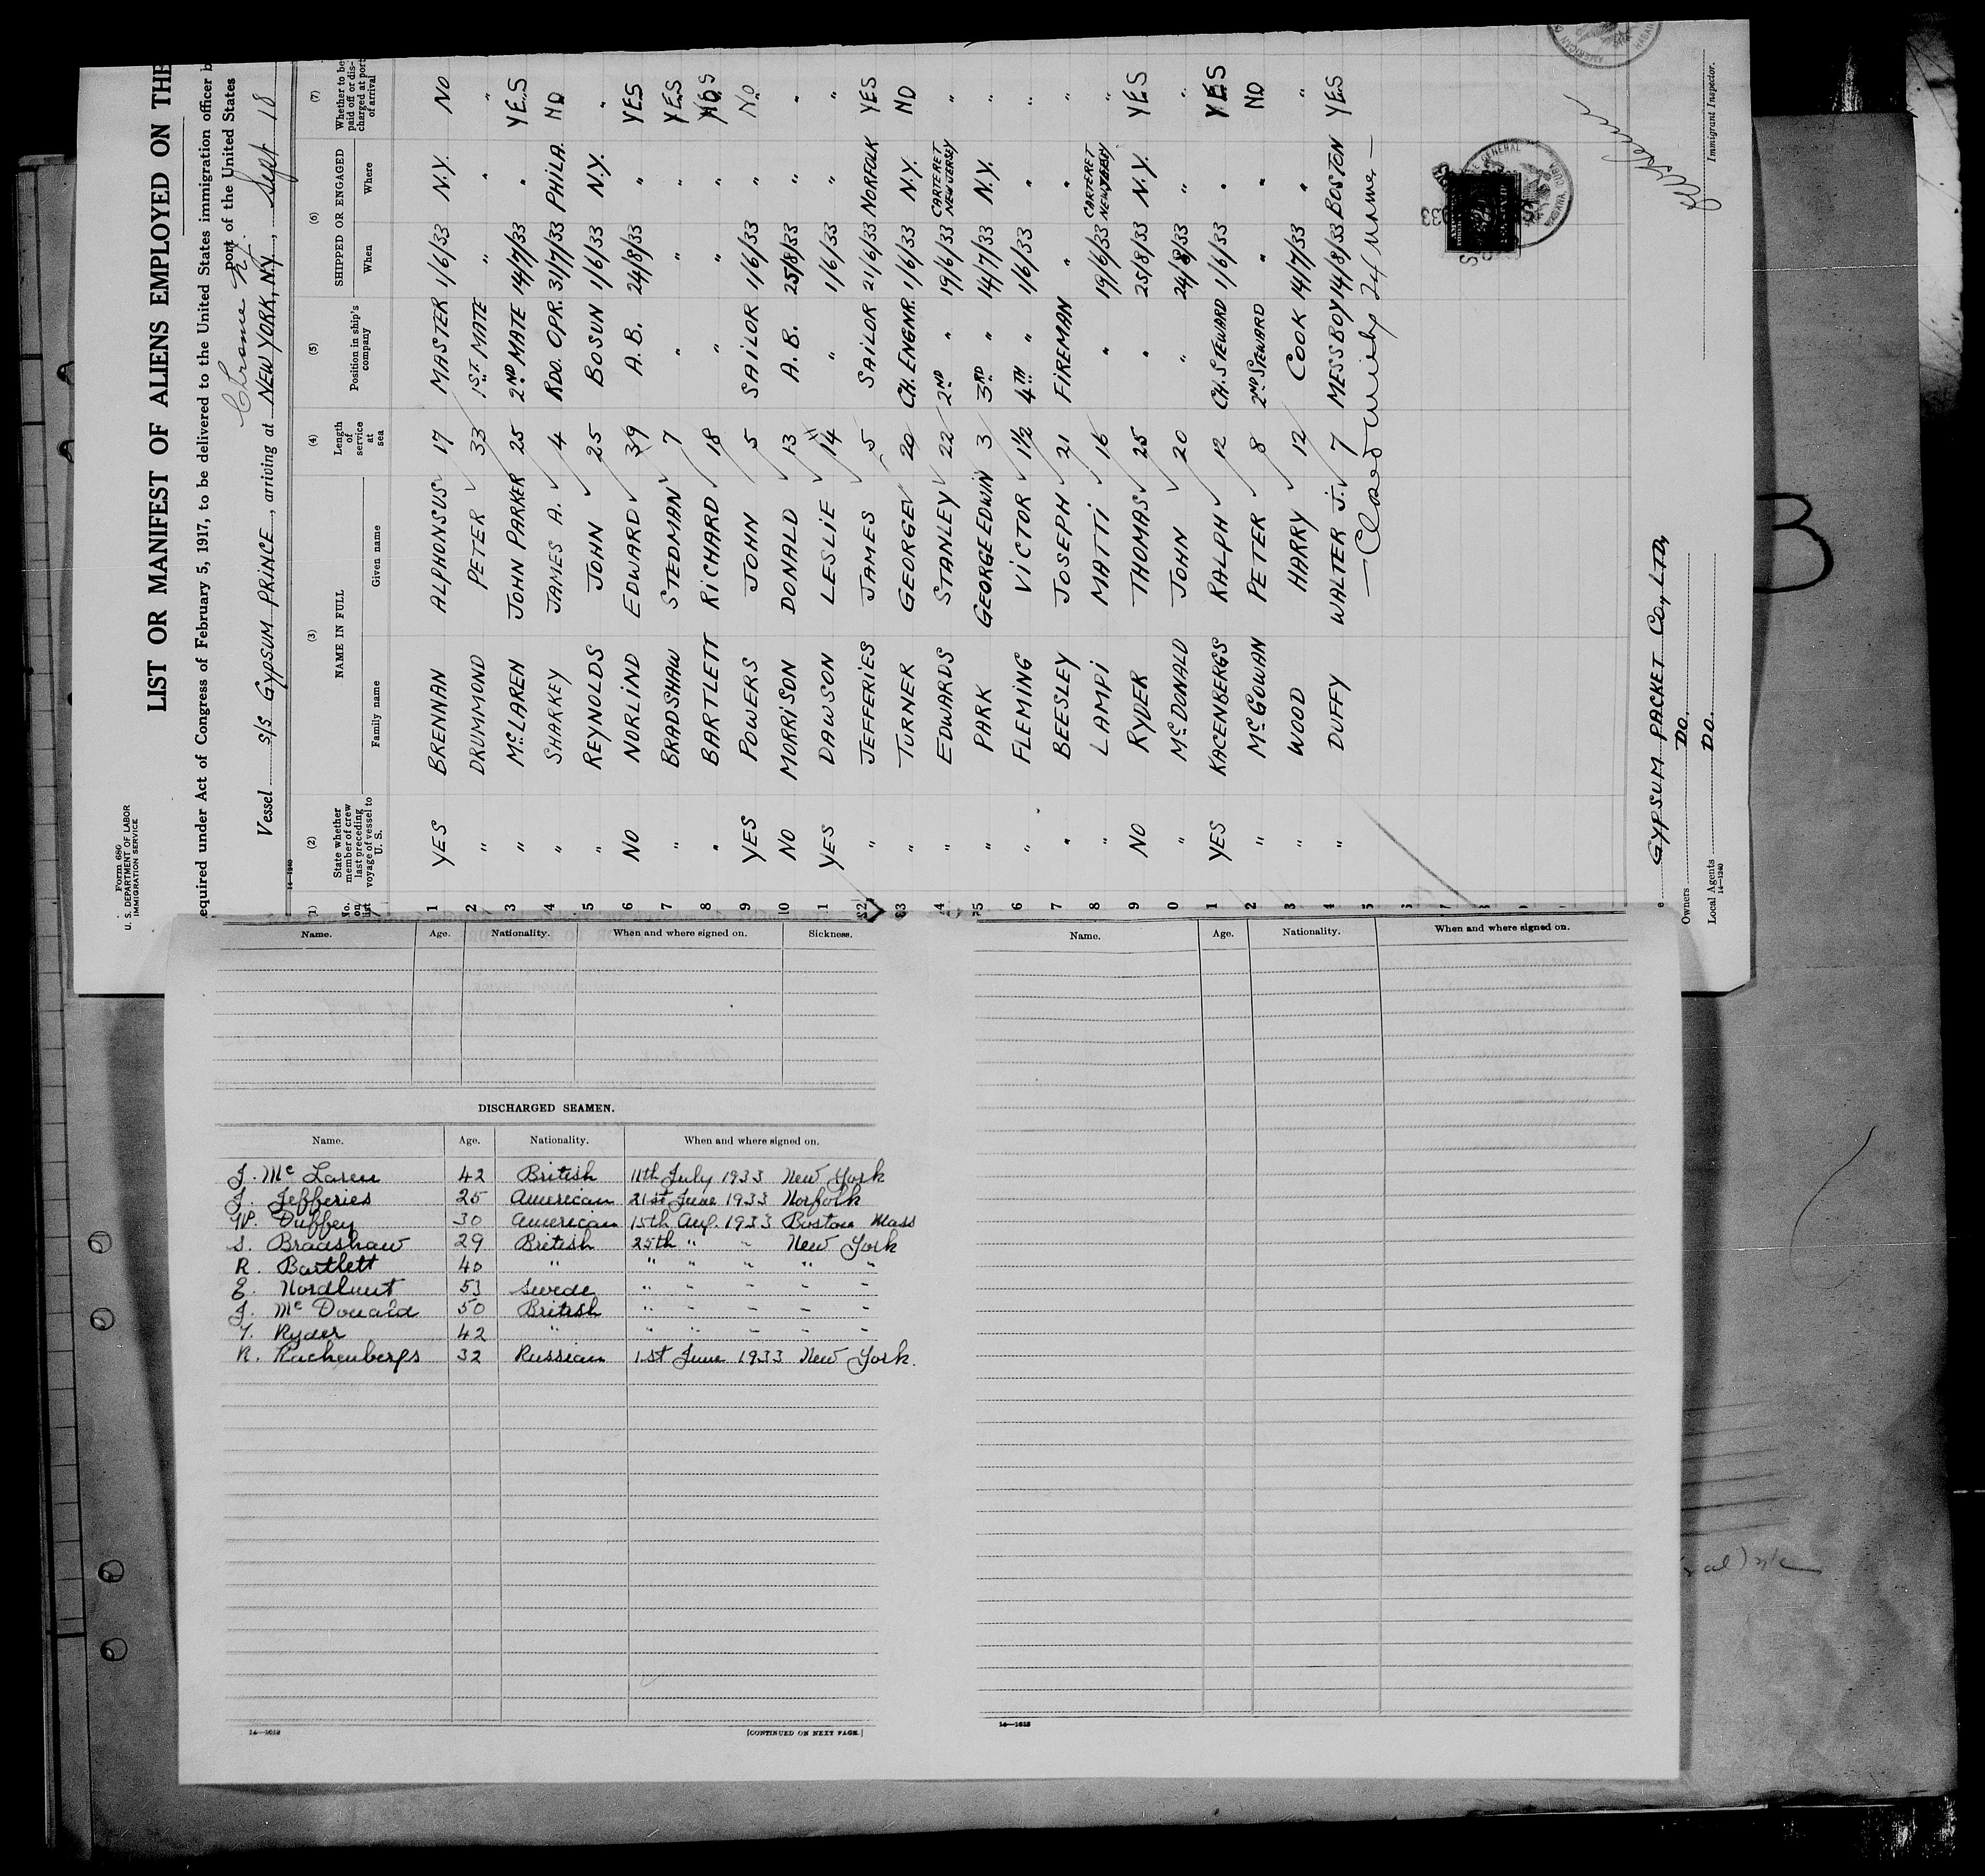 Form 680
U. S. DEPARTMENT OF LABOR
IMMIGRATION SERVICE
LIST OR MANIFEST OF ALIENS EMPLOYED ON THE
equired under Act of Congress of February 5, 1917, to be delivered to the United States immigration officer b
port of the United States
Vessel S/S GYPSUM PRINCE, arriving at NEW YORK, N.Y., Sept 18
14—1240
(1) (2) (3) (4) (5) (6) (7)
No. on list State whether member of crew last preceding voyage of vessel to U. S. NAME IN FULL Length of service at sea Position in ship's company SHIPPED OR ENGAGED Whether to be paid off or discharged at port of arrival
Family name Given name When Where
1 YES BRENNAN ALPHONSUS 17 MASTER 1/6/33 N.Y. NO
2 " DRUMMOND PETER 33 1ST MATE " " "
3 " McLAREN JOHN PARKER 25 2ND MATE 14/7/33 " YES
4 " SHARKEY JAMES A. 4 RDO. OPR. 31/7/33 PHILA. NO
5 " REYNOLDS JOHN 25 BOSUN 1/6/33 N.Y. "
6 NO NORLIND EDWARD 39 A.B. 24/8/33 " YES
7 " BRADSHAW STEDMAN 7 " " " YES
8 " BARTLETT RICHARD 18 " " "
9 YES POWERS JOHN 5 SAILOR 1/6/33 " NO
10 NO MORRISON DONALD 13 A.B. 25/8/33 " "
1 YES DAWSON LESLIE 14 " 1/6/33 " "
2 " JEFFERIES JAMES 5 SAILOR 21/6/33 NORFOLK YES
3 " TURNER GEORGE 20 CH. ENGNR. 1/6/33 N.Y. NO
4 " EDWARDS STANLEY 22 2ND " 19/6/33 CARTERET NEW JERSEY "
5 " PARK GEORGE EDWIN 3 3RD " 14/7/33 N.Y. "
6 " FLEMING VICTOR 1½ 4TH " 1/6/33 " "
7 " BEESLEY JOSEPH 21 FIREMAN " " "
8 " LAMPI MATTI 16 " 19/6/33 CARTERET NEW JERSEY "
9 NO RYDER THOMAS 25 " 25/8/33 N.Y. YES
0 " McDONALD JOHN 20 " 24/8/33 " "
1 YES KACENBERGS RALPH 12 CH. STEWARD 1/6/33 " YES
2 " McGOWAN PETER 8 2ND STEWARD " " NO
3 " WOOD HARRY 12 COOK 14/7/33 " "
4 " DUFFY WALTER J. 7 MESSBOY 14/8/33 BOSTON YES
— Closed with 24 names —
GYPSUM PACKET CO., LTD,
Owners DO
Local Agents DO
14—1240
Immigrant Inspector.
B
Name. Age. Nationality. When and where signed on. Sickness.
DISCHARGED SEAMEN.
Name. Age. Nationality. When and where signed on.
J. Mc Laren 42 British 11th July 1933 New York
J. Jefferies 25 American 21st June 1933 Norfolk
W. Duffey 30 American 15th Aug. 1933 Boston Mass
S. Bradshaw 29 British 25th " " New York
R. Bartlett 40 " " " " " "
E. Nordlunt 53 Swede " " " " "
J. Mc Donald 50 British " " " " "
T. Ryder 42 " " " " " "
R. Kachenbergs 32 Russian 1st June 1933 New York.
14—1613
[CONTINUED ON NEXT PAGE.]
Name. Age. Nationality. When and where signed on.
14—1613